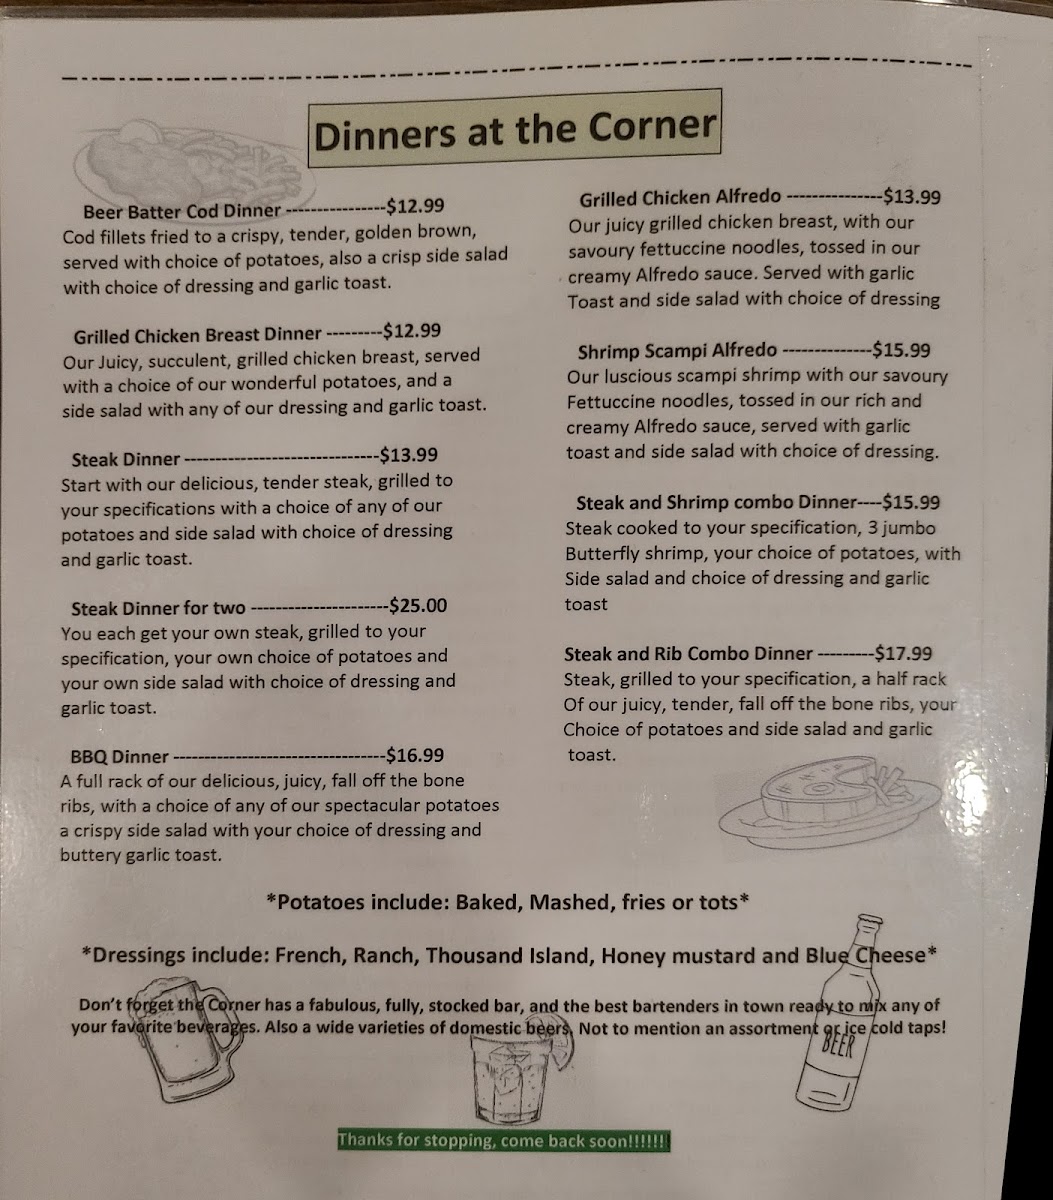 Dinners at the Corner
Beer Batter Cod Dinner ----------------$12.99
Cod fillets fried to a crispy, tender, golden brown,
served with choice of potatoes, also a crisp side salad
with choice of dressing and garlic toast.
Grilled Chicken Breast Dinner ---------$12.99
Our Juicy, succulent, grilled chicken breast, served
with a choice of our wonderful potatoes, and a
side salad with any of our dressing and garlic toast.
Steak Dinner -------------------------------$13.99
Start with our delicious, tender steak, grilled to
your specifications with a choice of any of our
potatoes and side salad with choice of dressing
and garlic toast.
Steak Dinner for two ----------------------$25.00
You each get your own steak, grilled to your
specification, your own choice of potatoes and
your own side salad with choice of dressing and
garlic toast.
BBQ Dinner ----------------------------------$16.99
A full rack of our delicious, juicy, fall off the bone
ribs, with a choice of any of our spectacular potatoes
a crispy side salad with your choice of dressing and
buttery garlic toast.
Grilled Chicken Alfredo ---------------$13.99
Our juicy grilled chicken breast, with our
savoury fettuccine noodles, tossed in our
creamy Alfredo sauce. Served with garlic
Toast and side salad with choice of dressing
Shrimp Scampi Alfredo --------------$15.99
Our luscious scampi shrimp with our savoury
Fettuccine noodles, tossed in our rich and
creamy Alfredo sauce, served with garlic
toast and side salad with choice of dressing.
Steak and Shrimp combo Dinner----$15.99
Steak cooked to your specification, 3 jumbo
Butterfly shrimp, your choice of potatoes, with
Side salad and choice of dressing and garlic
toast
Steak and Rib Combo Dinner ---------$17.99
Steak, grilled to your specification, a half rack
Of our juicy, tender, fall off the bone ribs, your
Choice of potatoes and side salad and garlic
toast.
*Potatoes include: Baked, Mashed, fries or tots*
*Dressings include: French, Ranch, Thousand Island, Honey mustard and Blue Cheese*
Don't forget the Corner has a fabulous, fully, stocked bar, and the best bartenders in town ready to mix any of
your favorite beverages. Also a wide varieties of domestic beers, Not to mention an assortment or ice cold taps!
BEER
Thanks for stopping, come back soon!!!!!!